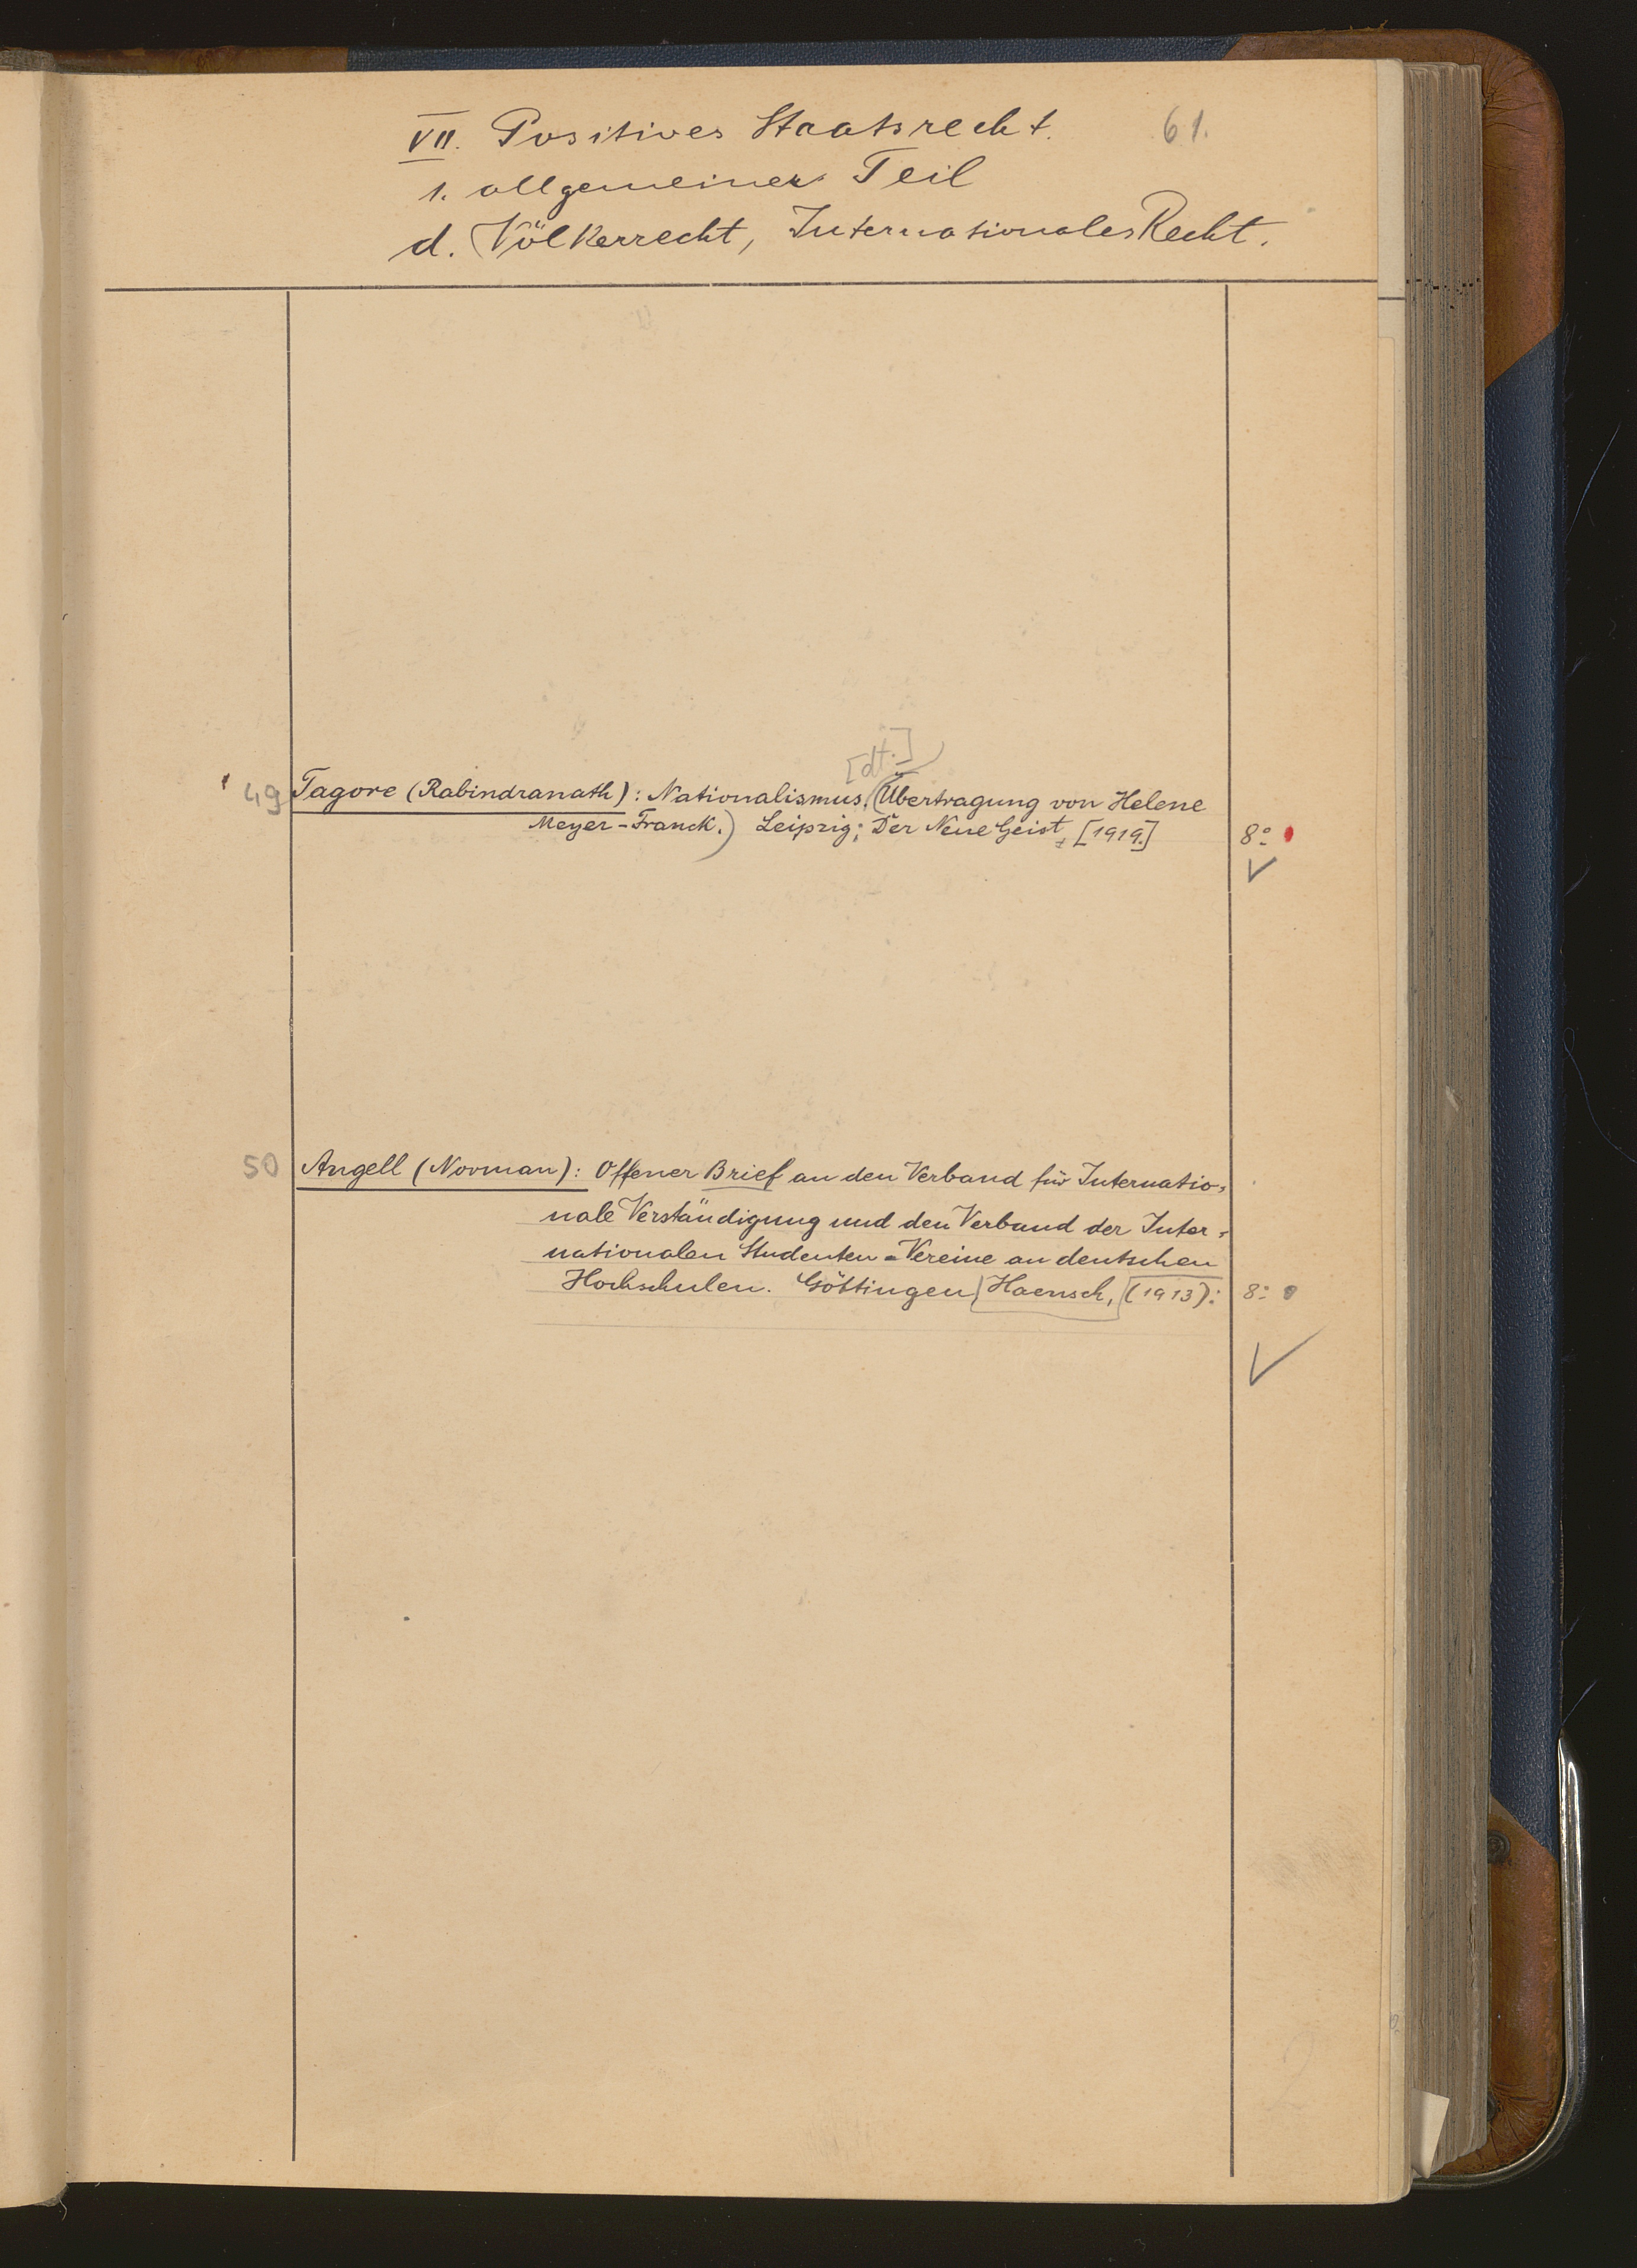 VII. Positives Staatsrecht. 61.
1. allgemeiner Teil
d. Völkerrecht, Internationales Recht.
[dt.]
49 Tagore (Rabindranath): Nationalismus. (Übertragung von Helene
Meyer-Franck.) Leipzig: Der Neue Geist, [1919.] 8°
50 Angell (Norman): Offener Brief an den Verband für Internatio=
nale Verständigung und den Verband der Inter=
nationalen Studenten=Vereine an deutschen
Hochschulen. Göttingen, Haensch, (1913): 8°